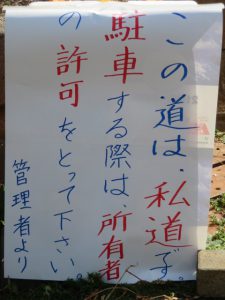 この道は、私道です。
駐車する際は、所有者
の許可をとって下さい。
管理者より